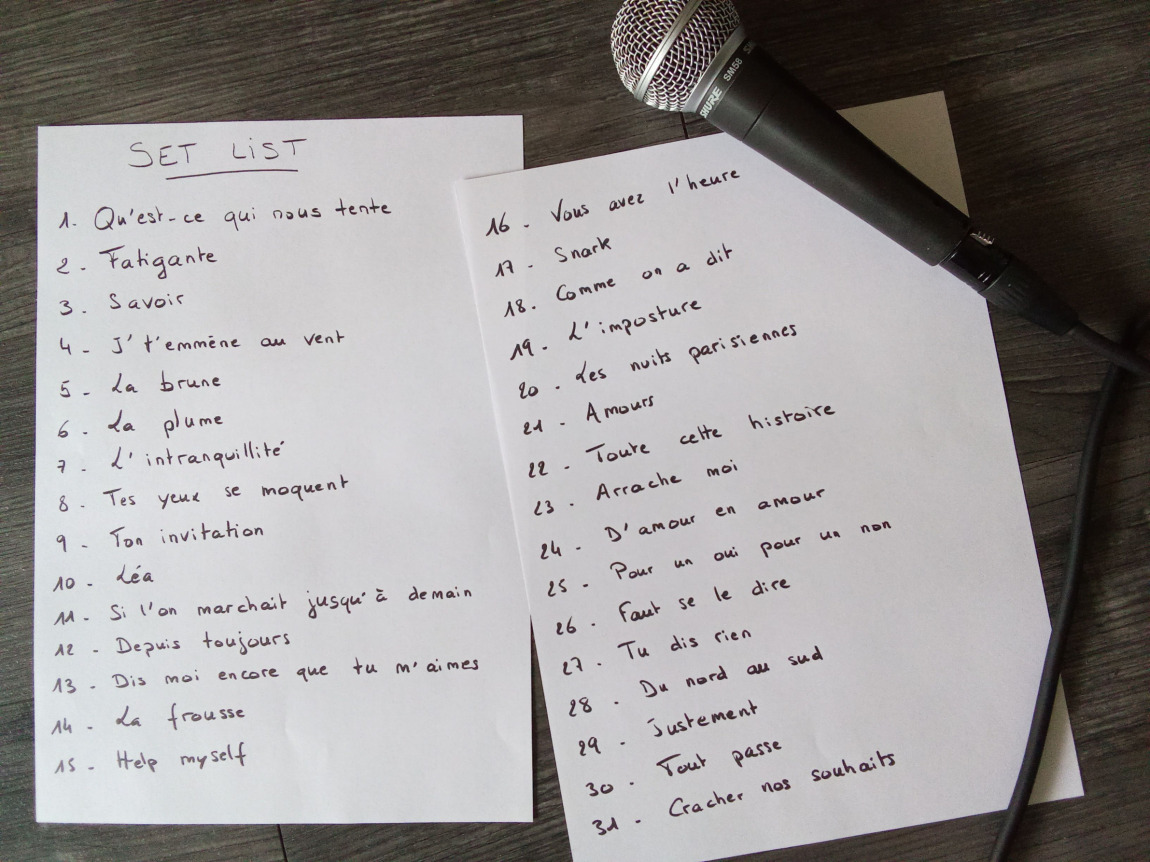 SET LIST
1. Qu'est-ce qui nous tente
2. Fatigante
3. Savoir
4 - J't'emmène au vent
5 - La brune
6. La plume
7 - L'intranquillité
8. Tes yeux se moquent
9 - Ton invitation
10 - Léa
11. Si l'on marchait jusqu'à demain
12 - Depuis toujours
13 - Dis moi encore que tu m'aimes
14 - La frousse
15 - Help myself
16 - Vous avez l'heure
17 - Snark
18. Comme on a dit
19 - L'imposture
20 - Les nuits parisiennes
21 - Amours
22 - Toute cette histoire
23 - Arrache moi
24 - D'amour en amour
25 - Pour un oui pour un non
26 - Faut se le dire
27 - Tu dis rien
28 - Du nord au sud
29 - Justement
30 - Tout passe
31 - Cracher nos souhaits
SHURE SM58